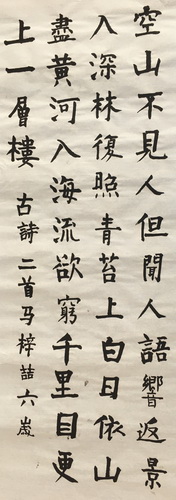 空山不見人但聞人語響返景
入深林復照青苔上白日依山
盡黃河入海流欲窮千里目更
上一層樓 古詩二首马梓喆六歲